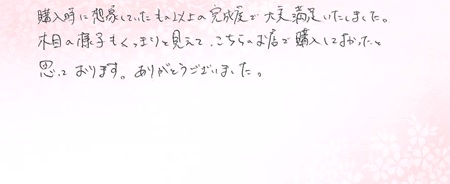 購入時に想像していたもの以上の完成度で大変満足いたしました。
木目の様子もくっきりと見えて、こちらのお店で購入してよかったと
思っております。ありがとうございました。